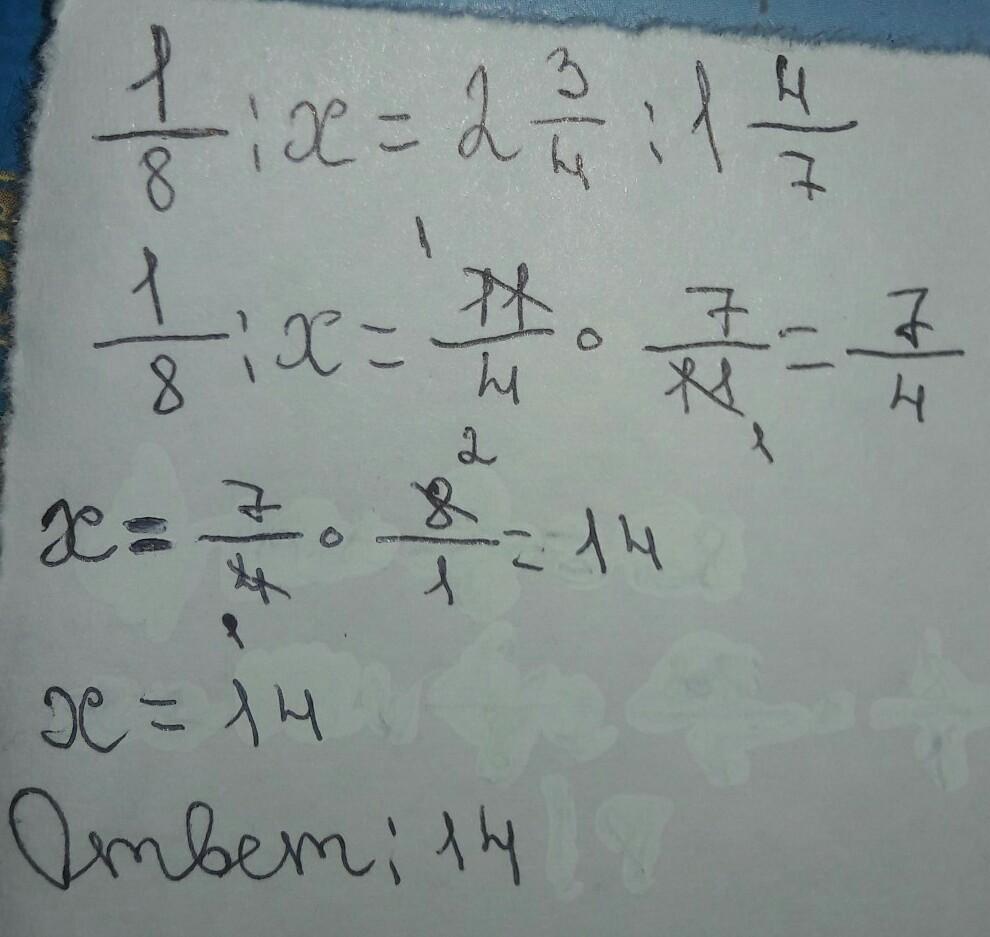 1/8 : x = 2 3/4 : 1 4/7
1/8 : x = 11/4 · 7/11 = 7/4
x = 7/4 · 8/1 = 14
x = 14
Ответ: 14